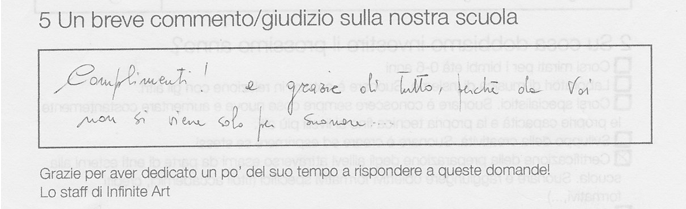 5 Un breve commento/giudizio sulla nostra scuola
Complimenti! e grazie di tutto, perchè da Voi
non si viene solo per suonare..
Grazie per aver dedicato un po' del suo tempo a rispondere a queste domande!
Lo staff di Infinite Art